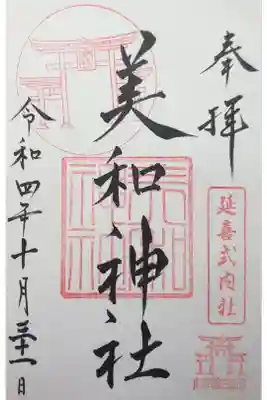 奉拝
延喜式内社
美和神社
令和四年十月三十一日